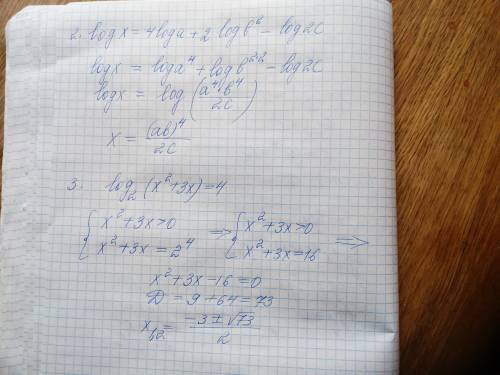 2. log x = 4 log a + 2 log b² − log 2c
log x = log a⁴ + log b²·² − log 2c
log x = log (a⁴b⁴ / 2c)
x = (ab)⁴ / 2c
3. log₂ (x² + 3x) = 4
{ x² + 3x > 0 ⇒ { x² + 3x > 0
{ x² + 3x = 2⁴ { x² + 3x = 16 ⇒
x² + 3x − 16 = 0
D = 9 + 64 = 73
x₁,₂ = (−3 ± √73) / 2